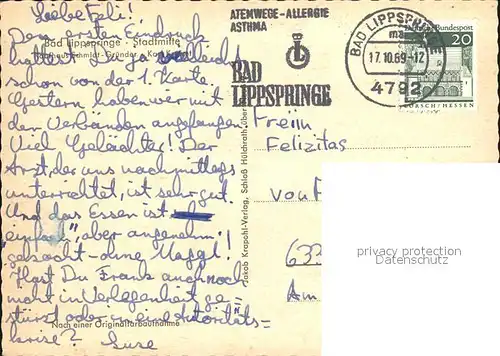 Liebe Epli!
Dem ersten Eindruck
hattest Du ja vielleicht
schon von der 1. Karte.
Gestern haben wir mit
den Verbänden angefangen.
Viel Gelächter! Der
Arzt, der uns nachmittags
unterrichtet, ist sehr gut.
Und das Essen ist
einfach, aber angenehm
gekocht – ohne Maggi!
Hast Du Frank auch noch
nicht in Verlegenheit ge=
stürzt oder in eine Autoritäts=
krise? Suse
Bad Lippspringe - Stadtmitte
Nach einer Originalfarbaufnahme
Jakob Krapohl-Verlag, Schloß Hülchrath über
ATEMWEGE-ALLERGIE
ASTHMA
BAD
LIPPSPRINGE
BAD LIPPSPRINGE
17.10.69-12
4792
Deutsche Bundespost
20
LORSCH/HESSEN
Freiin
Felizitas
von
633
Am
privacy protection
Datenschutz